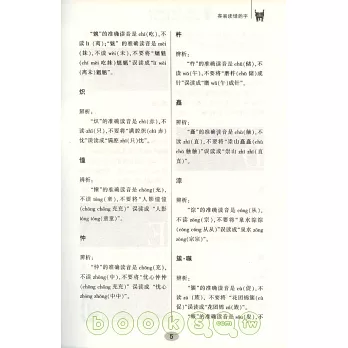 容易读错的字
"魑"的准确读音是 chī(吃),不
读 lí (离);"魅"的准确读音是
mèi(妹),不读 wèi(未),不要将"魑魅
(chī mèi 吃妹)魍魉"误读成"lí wèi
(离未)魍魉"。
炽
辨析:
"炽"的准确读音是 chì(赤),不
读 zhǐ(只),不要将"满腔炽(chì 赤)
忱"误读成"满腔 zhǐ(只)忱"。
憧
辨析:
"憧"的准确读音是 chōng(充),
不读 tóng(童),不要将"人影憧憧
(chōng chōng 充充)" 误读成 "人影
tóng tóng(童童)"。
忡
辨析:
"忡"的准确读音是 chōng(充),
不读 zhōng(中),不要将"忧心忡忡
(chōng chōng 充充)" 误读成 "忧心
zhōng zhōng(中中)"。
杵
辨析:
"杵"的准确读音是 chǔ(储),不
读 wǔ(午),不要将"磨杵(chǔ 储)成
针"误读成"磨 wǔ(午)成针"。
矗
辨析:
"矗"的准确读音是 chù(触),不
读 zhí(直),不要将
chù 触触)"误读成
直)"。
淙
辨析:
"淙"的准确读音是 cóng(从),
不读 zōng(宗),不要将"泉水淙淙
(cóng cóng 从从)"误读成"泉水 zōng
zōng(宗宗)"。
簇·蹴
辨析:
"簇"的准确读音是 cù(促),不
读 zú (族),不要将 "花团锦簇(cù
促)"误读成"花团锦 zú(族)"。
"蹴"的准确读音是 cù(促),不
5
books.com.tw